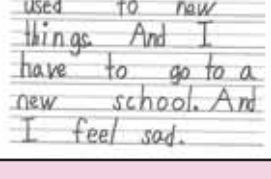 used to new
things. And I
have to go to a
new school. And
I feel sad.